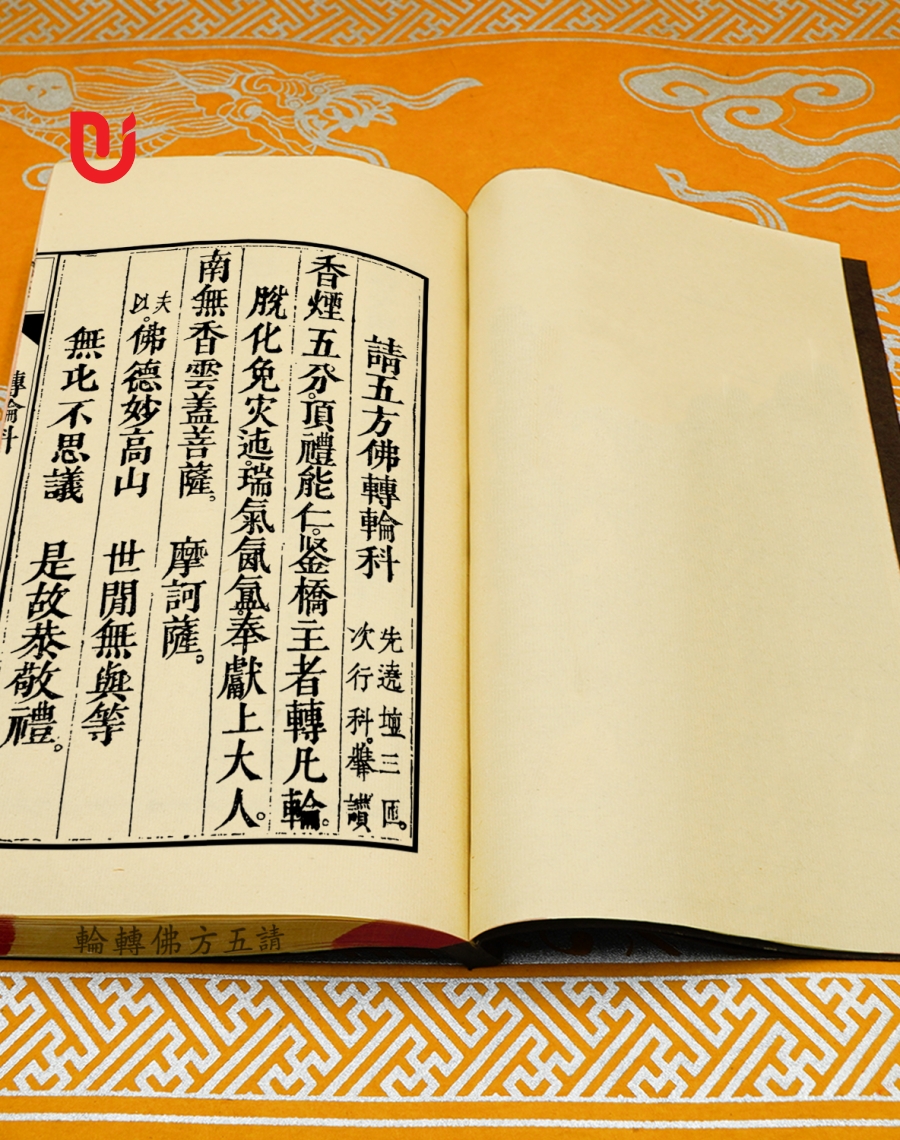 請五方佛轉輪科
先遶壇三匝。
次行科。舉讚
香煙五分。頂禮能仁。鋻橋主者轉凡輪。
脫化免灾迍。瑞氣氤氲。奉獻上大人。
南無香雲蓋菩薩。 摩訶薩。
夫以。佛德妙高山 世閒無與等
無比不思議 是故恭敬禮。
轉輪科
請五方佛轉輪